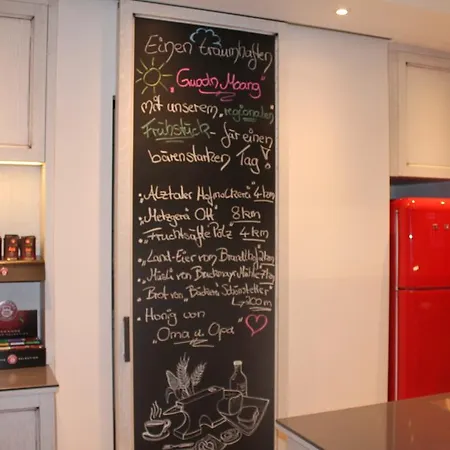 Einen traumhaften
"Guadn Moang"
mit unserem regionalen
Frühstück - für einen
bärenstarken Tag!
"Alztaler Hofmolkerei" 4 km
"Metzgerei Ott" 8 km
"Fruchtsäfte Pölz" 4 km
"Land-Eier von Brandlhof" 2 km
Müsli von
Brot von "Bäckerei Schönstetter"
↳ 200 m
Honig von
"Oma u. Opa"